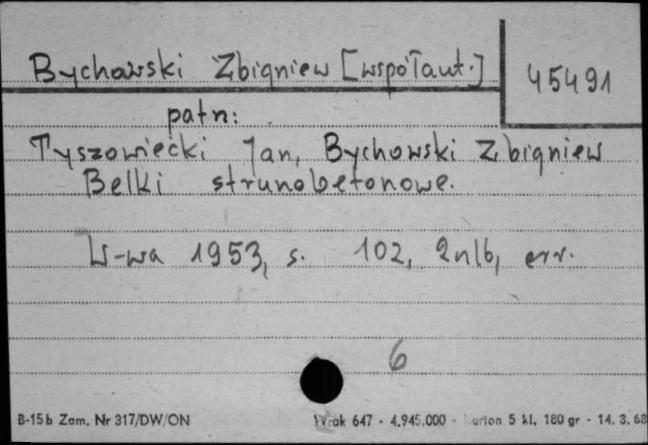 Bychowski Zbigniew [współaut.]
45491
patrz:
Tyszowiecki Jan, Bychowski Zbigniew
Belki strunobetonowe.
W-wa 1953, s. 102, 2nlb, err.
6
B-15b Zam. Nr 317/DW/ON
647 - 4.945.000 - 5 kl. 180 gr - 14. 3. 68